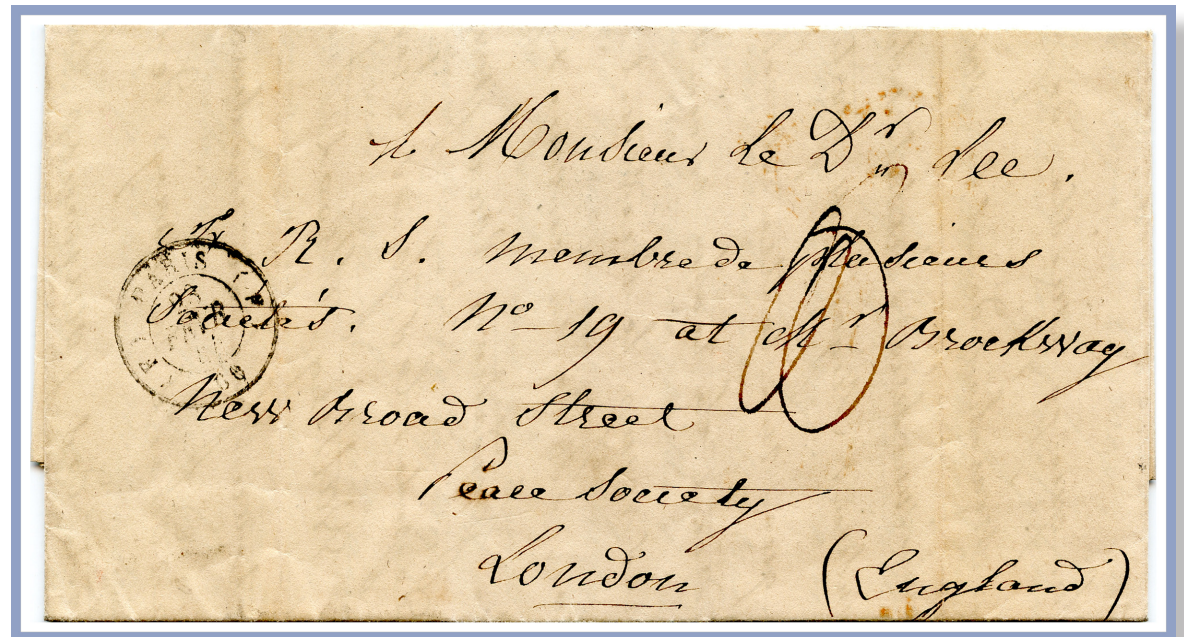 A Monsieur le Dr Lee.
F. R. S. membre de plusieurs
Sociétés. No 19 at Mr Brockway
New Broad Street
Peace Society
London (England)
PARIS